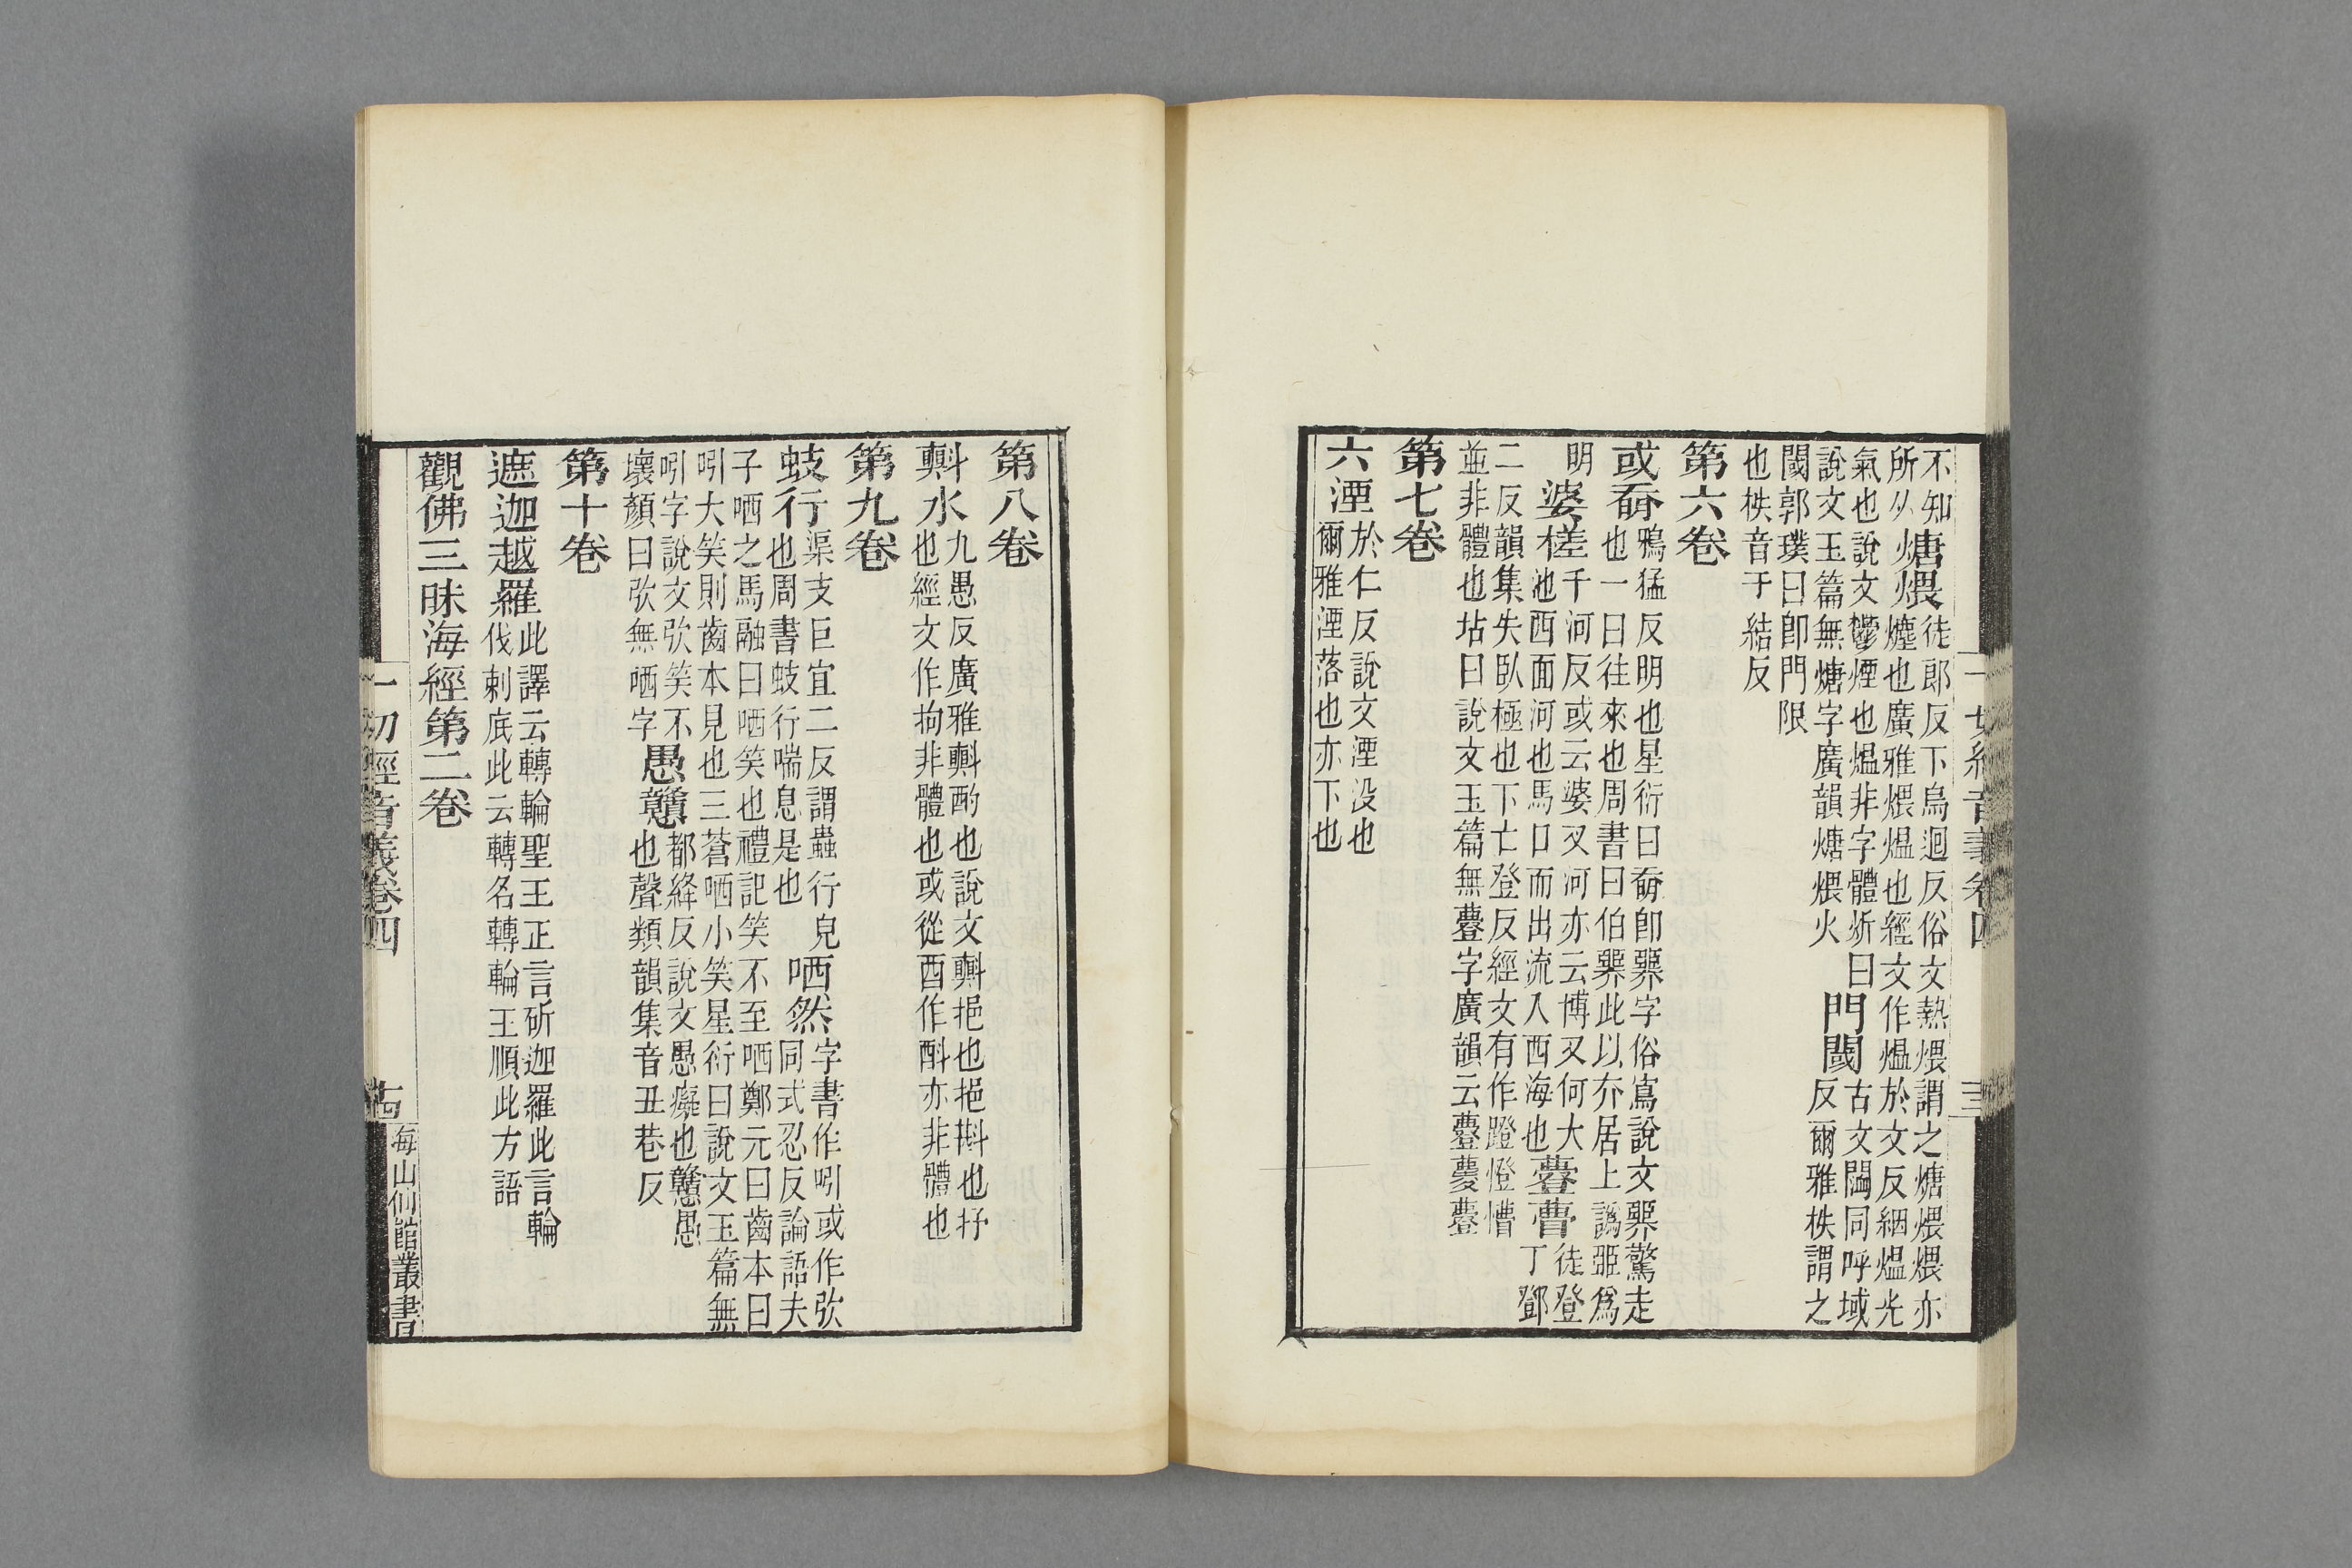 不知
所从煻煨徒郎反下烏迴反俗文熱煨謂之煻煨煨亦
㷫也廣雅煨煴也經文作煴於文反絪煴光
氣也說文鬱煙也煴非字體炘曰門閾古文閾同呼域
說文玉篇無煻字廣韻煻煨火
反爾雅柣謂之
閾郭璞曰即門限
也柣音于結反
第六卷
或奟鴉猛反明也星衍曰奟即臩字俗寫說文臩驚走
也一曰往來也周書曰伯臩此以夰居上譌𦣞爲
明婆槎千河反或云婆叉河亦云博叉何大
池西面河也馬口而出流入西海也
㲪瞢徒登
丁鄧
二反韻集失臥極也下亡登反經文有作蹬憕懵
並非體也坫曰說文玉篇無㲪字廣韻云㲪
第七卷
六湮於仁反說文湮没也
爾雅湮落也亦下也
第八卷
㪺水九愚反廣雅㪺酌也說文㪺挹也挹㪺也抒
也經文作拘非體也或從酉作酙亦非體也
第九卷
蚑行渠支巨宜二反謂蟲行皃
也周書蚑行喘息是也
哂然字書作吲或作弞
同式忍反論語夫
子哂之馬融曰哂笑也禮記笑不至哂鄭元曰齒本曰
吲大笑則齒本見也三蒼哂小笑星衍曰說文玉篇無
吲字說文弞笑不
壞顏曰弞無哂字
愚戇都絳反說文愚癡也戇愚
也聲類韻集音丑巷反
第十卷
遮迦越羅此譯云轉輪聖王正言斫迦羅此言輪
伐剌底此云轉名轉輪王順此方語
觀佛三昧海經第二卷
一切經音義卷四
十四
海山仙館叢書